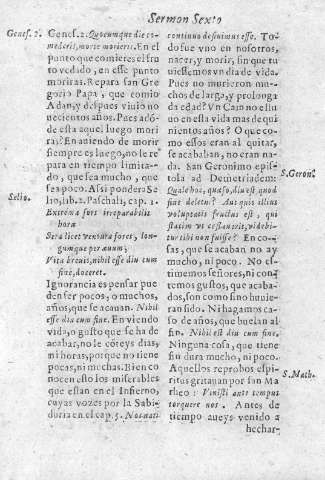 Sermon Sexto
Genes. 2.
Genes. 2. Quocumque die co-
mederis, morte morieris. En el
punto que comieres el fru-
to vedado, en esse punto
moriras. Repara san Gre-
gorio Papa, que comio
Adan, y despues viuio no
uecientos años. Pues adó-
de esta aquel luego mori
ra? En auiendo de morir
siempre es luego, no le re
para en tiempo limita-
do, que sea mucho, que
sea poco. Assi pondera Se
Selio.
lio, lib. 2. Paschali, cap. 1.
Extrema fors irreparabilis
hora
Sera licet ventura foret, lon-
gumque per auum,
Vita breuis, nihil esse diu cum
fine, doceret.
Ignorancia es pensar pue
den ser pocos, o muchos,
años, que se acauan. Nihil
esse diu cum fine. En viendo
vida, o gusto que se ha de
acabar, no le cõteys dias,
ni horas, porque no tiene
pocas, ni mechas. Bien co
nocen esto los miserables
que estan en el Infierno,
cuyas vozes por la Sabi-
duria en el cap. 5. Nos nati
continuo desiuimus esse. To
do fue vno en nosotros,
nacer, y morir, sin que tu
uiessemos vn dia de vida.
Pues no murieron mu-
chos de larga, y prolonga
da edad? Vn Cain no estu
uo en esta vida mas de qui
nientos años? O que co-
mo essos eran al quitar,
se acababan, no eran na-
da. San Geronimo epis-
S. Geron.
tola ad Demetriadem:
Quale hoc, quæso, diu est quod
fine deletur? Aut quis illius
voluptatis fructus est, qui
statim vt cessauerit, videbi-
tur tibi non fuisse? En co-
sas, que se acaban no ay
mucho, ni poco. No es-
timemos señores, ni con-
temos gustos, que acaba-
dos, son como sino huuie-
ran sido. Ni hagamos ca-
so de años, que buelan al
fin. Nihil est diu cum fine.
Ninguna cosa, que tiene
fin dura mucho, ni poco.
Aquellos reprobos espi-
S. Math.
ritus gritauan por san Ma
theo: Venisti ante tempus
torquere nos. Antes de
tiempo aueys venido a
hechar-